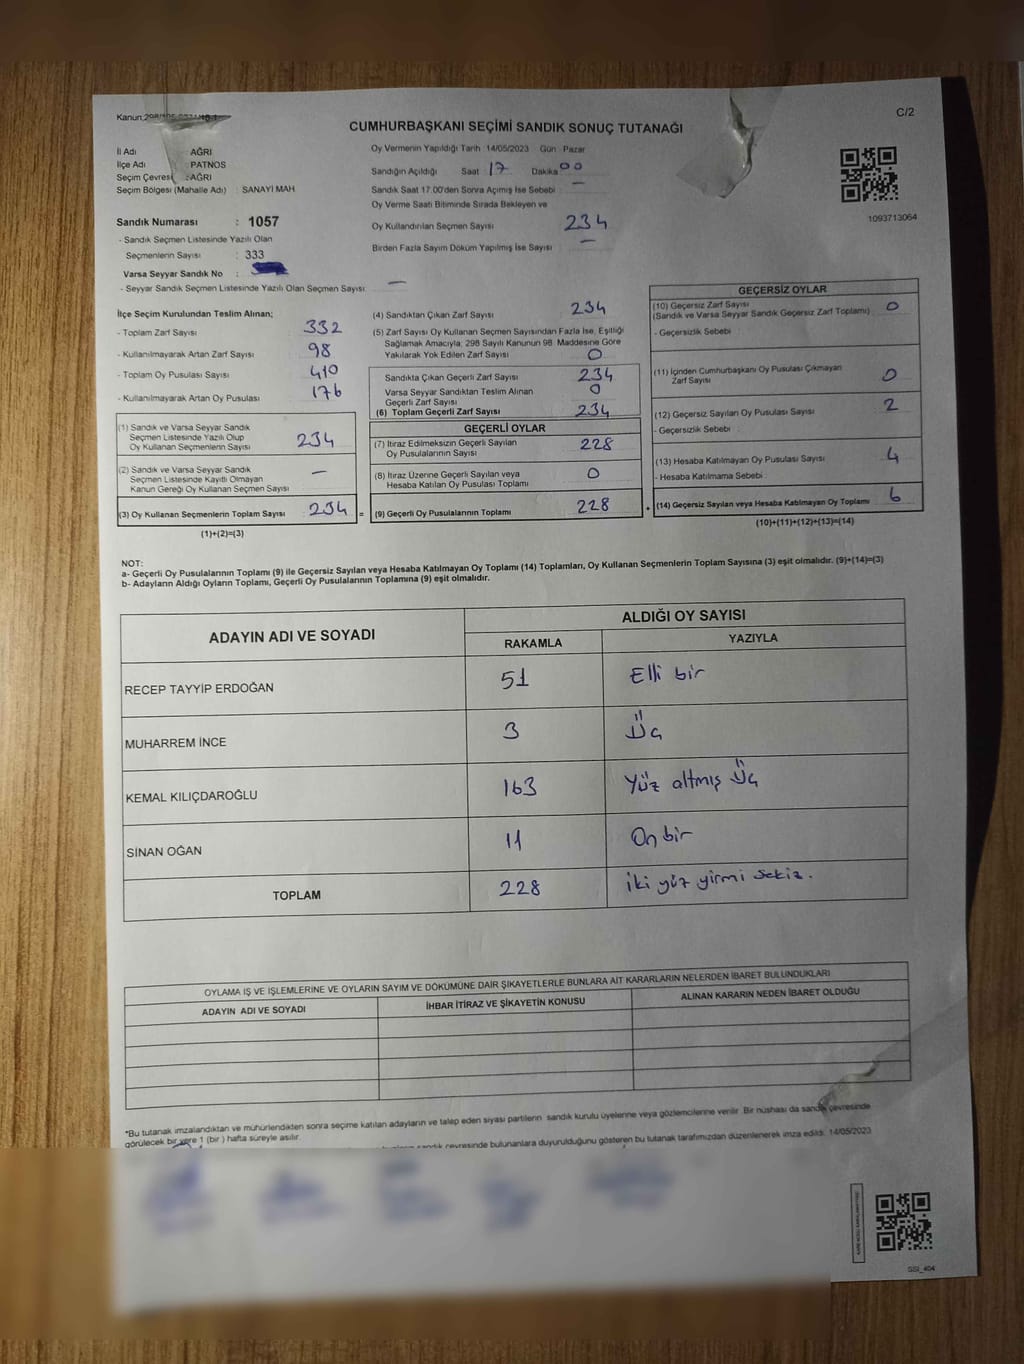 C/2
CUMHURBAŞKANI SEÇİMİ SANDIK SONUÇ TUTANAĞI
İl Adı : AĞRI
İlçe Adı : PATNOS
Seçim Çevresi : AĞRI
Seçim Bölgesi (Mahalle Adı) : SANAYİ MAH
Sandık Numarası : 1057
- Sandık Seçmen Listesinde Yazılı Olan
Seçmenlerin Sayısı : 333
Varsa Seyyar Sandık No :
- Seyyar Sandık Seçmen Listesinde Yazılı Olan Seçmen Sayısı: —
Oy Vermenin Yapıldığı Tarih 14/05/2023 Gün Pazar
Sandığın Açıldığı Saat 17 Dakika 00
Sandık Saat 17.00'den Sonra Açımış İse Sebebi —
Oy Verme Saati Bitiminde Sırada Bekleyen ve
Oy Kullandırılan Seçmen Sayısı 234
Birden Fazla Sayım Döküm Yapılmış İse Sayısı —
1093713064
İlçe Seçim Kurulundan Teslim Alınan;
- Toplam Zarf Sayısı 332
- Kullanılmayarak Artan Zarf Sayısı 98
- Toplam Oy Pusulası Sayısı 410
- Kullanılmayarak Artan Oy Pusulası 176
(1) Sandık ve Varsa Seyyar Sandık
Seçmen Listesinde Yazılı Olup
Oy Kullanan Seçmenlerin Sayısı 234
(2) Sandık ve Varsa Seyyar Sandık
Seçmen Listesinde Kayıtlı Olmayan
Kanun Gereği Oy Kullanan Seçmen Sayısı —
(3) Oy Kullanan Seçmenlerin Toplam Sayısı 234 =
(1)+(2)=(3)
(4) Sandıktan Çıkan Zarf Sayısı 234
(5) Zarf Sayısı Oy Kullanan Seçmen Sayısından Fazla İse, Eşitliği
Sağlamak Amacıyla; 298 Sayılı Kanunun 98. Maddesine Göre
Yakılarak Yok Edilen Zarf Sayısı 0
Sandıkta Çıkan Geçerli Zarf Sayısı 234
Varsa Seyyar Sandıktan Teslim Alınan
Geçerli Zarf Sayısı 0
(6) Toplam Geçerli Zarf Sayısı 234
GEÇERLİ OYLAR
(7) İtiraz Edilmeksizin Geçerli Sayılan
Oy Pusulalarının Sayısı 228
(8) İtiraz Üzerine Geçerli Sayılan veya
Hesaba Katılan Oy Pusulası Toplamı 0
(9) Geçerli Oy Pusulalarının Toplamı 228 +
GEÇERSİZ OYLAR
(10) Geçersiz Zarf Sayısı
(Sandık ve Varsa Seyyar Sandık Geçersiz Zarf Toplamı) 0
- Geçersizlik Sebebi :
(11) İçinden Cumhurbaşkanı Oy Pusulası Çıkmayan
Zarf Sayısı 0
(12) Geçersiz Sayılan Oy Pusulası Sayısı 2
- Geçersizlik Sebebi :
(13) Hesaba Katılmayan Oy Pusulası Sayısı 4
- Hesaba Katılmama Sebebi :
(14) Geçersiz Sayılan veya Hesaba Katılmayan Oy Toplamı 6
(10)+(11)+(12)+(13)=(14)
NOT:
a- Geçerli Oy Pusulalarının Toplamı (9) ile Geçersiz Sayılan veya Hesaba Katılmayan Oy Toplamı (14) Toplamları, Oy Kullanan Seçmenlerin Toplam Sayısına (3) eşit olmalıdır. (9)+(14)=(3)
b- Adayların Aldığı Oyların Toplamı, Geçerli Oy Pusulalarının Toplamına (9) eşit olmalıdır.
ADAYIN ADI VE SOYADI
ALDIĞI OY SAYISI
RAKAMLA YAZIYLA
RECEP TAYYİP ERDOĞAN 51 Elli bir
MUHARREM İNCE 3 Üç
KEMAL KILIÇDAROĞLU 163 Yüz altmış Üç
SİNAN OĞAN 11 On bir
TOPLAM 228 iki yüz yirmi sekiz.
OYLAMA İŞ VE İŞLEMLERİNE VE OYLARIN SAYIM VE DÖKÜMÜNE DAİR ŞİKAYETLERLE BUNLARA AİT KARARLARIN NELERDEN İBARET BULUNDUKLARI
ADAYIN ADI VE SOYADI İHBAR İTİRAZ VE ŞİKAYETİN KONUSU ALINAN KARARIN NEDEN İBARET OLDUĞU
*Bu tutanak imzalandıktan ve mühürlendikten sonra seçime katılan adayların ve talep eden siyasi partilerin sandık kurulu üyelerine veya gözlemcilerine verilir. Bir nüshası da sandık çevresinde
görülecek bir yere 1 (bir ) hafta süreyle asılır.
sandık çevresinde bulunanlara duyurulduğunu gösteren bu tutanak tarafımızdan düzenlenerek imza edildi. 14/05/2023
SSI_404